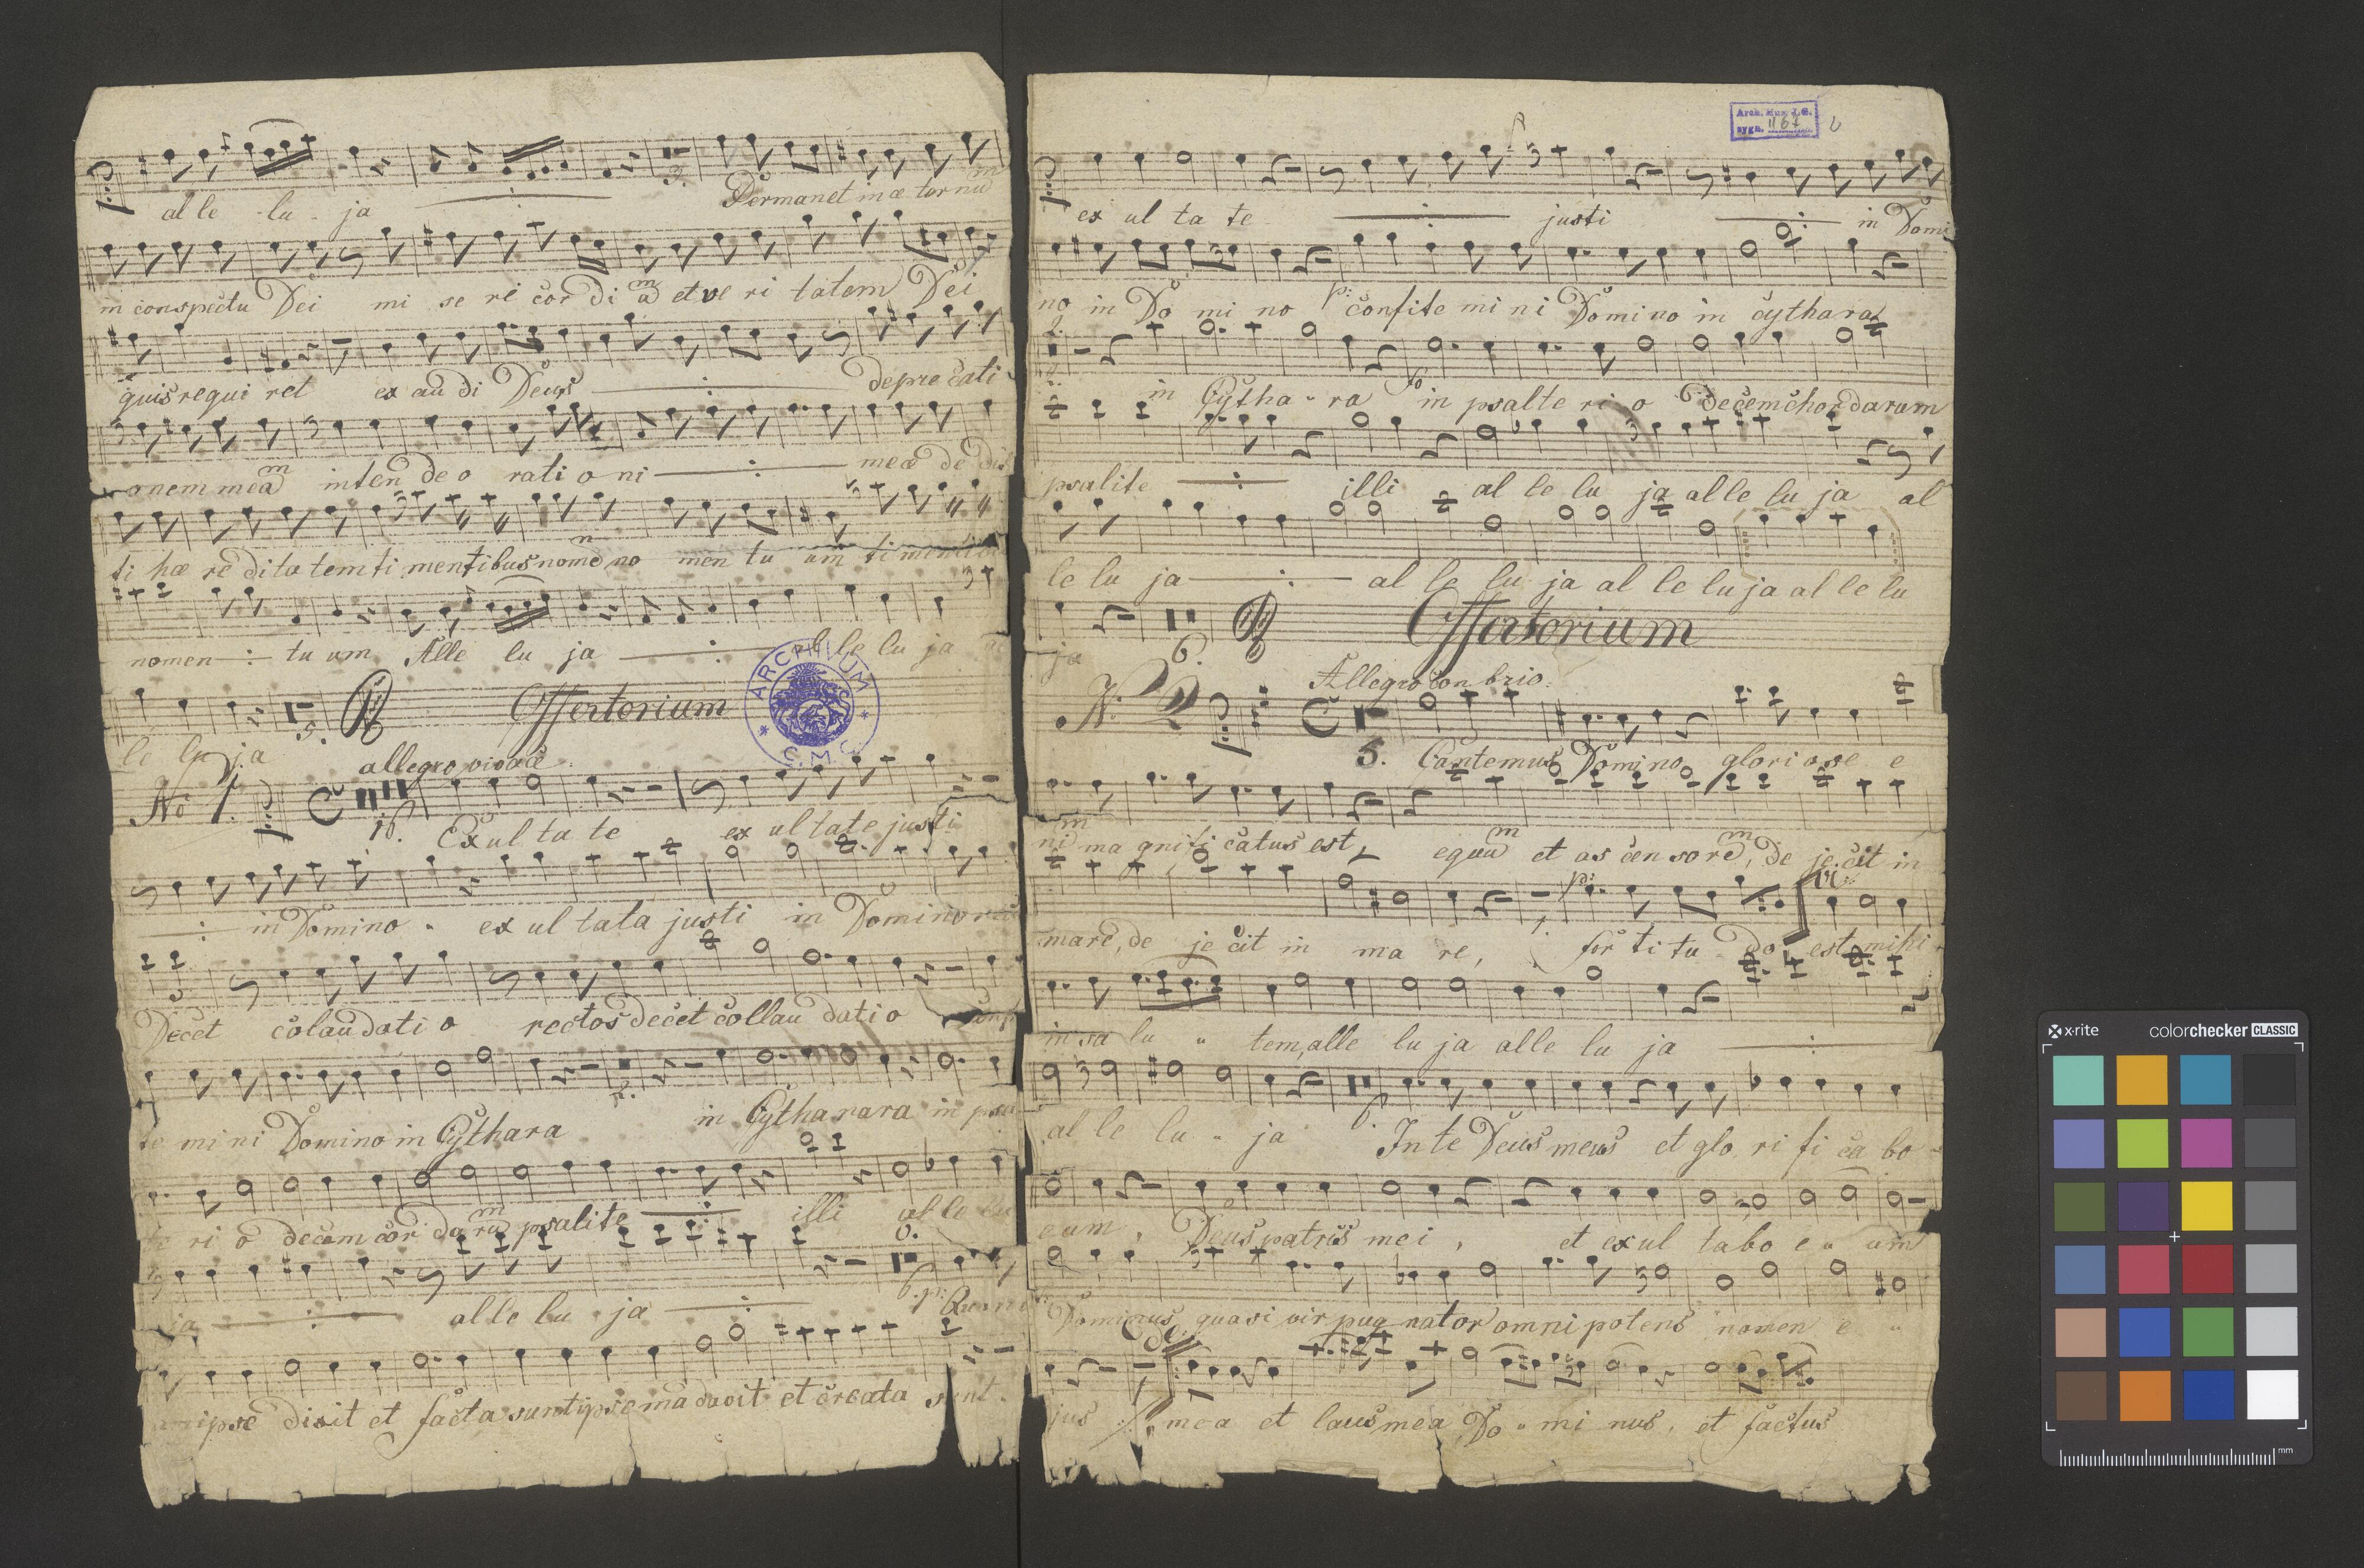 alle - lu - ja Permanet in æternũm
in conspectu Dei mi se ri cor di ãm et ve ri tatem Dei
quis requi ret ex au di Deus depre cati
onem meãm inten de o rati o ni meæ de dis
ti hæ re di ta tem ti mentibus nomẽn no men tu um
nomen tu um Alle lu ja lu ja
le lu ja 5. Offertorium
ARCHIVUM
C.M.C.
No 1. allegro vivace
16. Exul ta te ex ul tate justi
in Domino - ex ul tata justi in Domino
Decet colau dati o rectos decet collau dati o
te mi ni Domino in Cythara in Cytharara in psal
te ri o decem cor da rũm psalite illi al le lu
ja al le lu ja 6. Quoni
ipse dixit et facta sunt ipse mãdavit et creata sunt.
Arch. Muz. J.G.
sygn. 1167
ex ul ta te justi in Domi
no in Do mi no p: confite mi ni Domino in cythara
2. in Cytha - ra fo in psalte ri o decem chordarum
psalite illi al le lu ja alle lu ja al
le lu ja al le lu ja al le lu ja al le lu
ja 6. Offertorium
N. 2 Allegro con brio.
5. Cantemus Domino gloriose e
nĩm ma gnifi catus est, equũm et as cen sorẽm, de je cit in
mare, de je cit in ma re, 1. p: for ti tu - do est mihi
in sa lu - tem, alle lu ja alle lu ja
al le lu - ja 6. In te Deus meus et glo ri fi ca bo -
eum, Deus patris mei, et exul tabo e - um
Dominus, quasi vir pug nator omni potens nomen e -
jus 1. mea et laus mea, Do - mi nus, et factus
x-rite colorchecker CLASSIC
mm